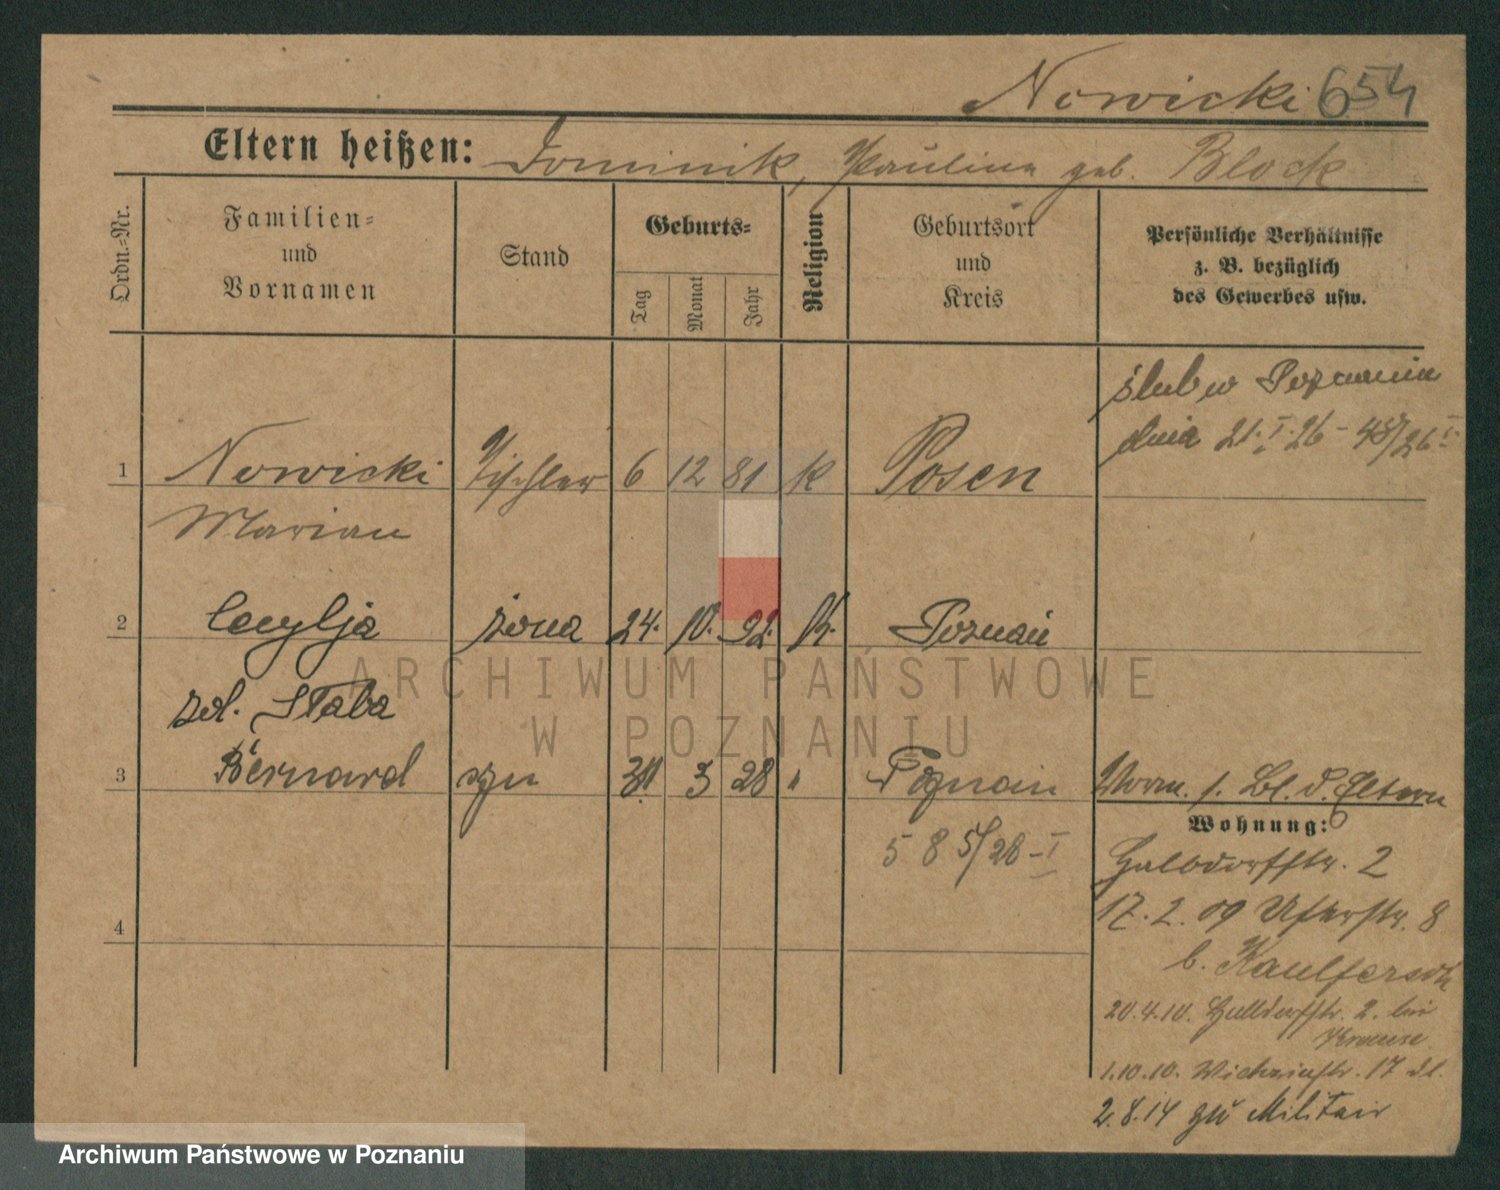 Nowicki 654
Eltern heißen: Dominik, Paulina geb. Block
Ordn.=Nr.
Familien=
und
Vornamen
Stand
Geburts=
Tag
Monat
Jahr
Religion
Geburtsort
und
Kreis
Persönliche Verhältnisse
z. B. bezüglich
des Gewerbes usw.
ślub w Poznaniu
dnia 21. I. 26 - 48/26 I.
1 Nowicki Tischler 6 12 81 k Posen
Marian
2 Cecylja żona 24. 10. 92. k. Poznań
zd. Staba
3 Bernard syn 31 3 28 " Poznań
585/28-I
Vorm. s. Bl. d. Eltern
Wohnung:
Halbdorfstr. 2
17.2.09 Uferstr. 8
b. Kaulfersch
20.4.10. Halbdorfstr. 2. bei
Krause
1.10.10. 17
2.8.14 zu Militair
4
ARCHIWUM PAŃSTWOWE
W POZNANIU
Archiwum Państwowe w Poznaniu